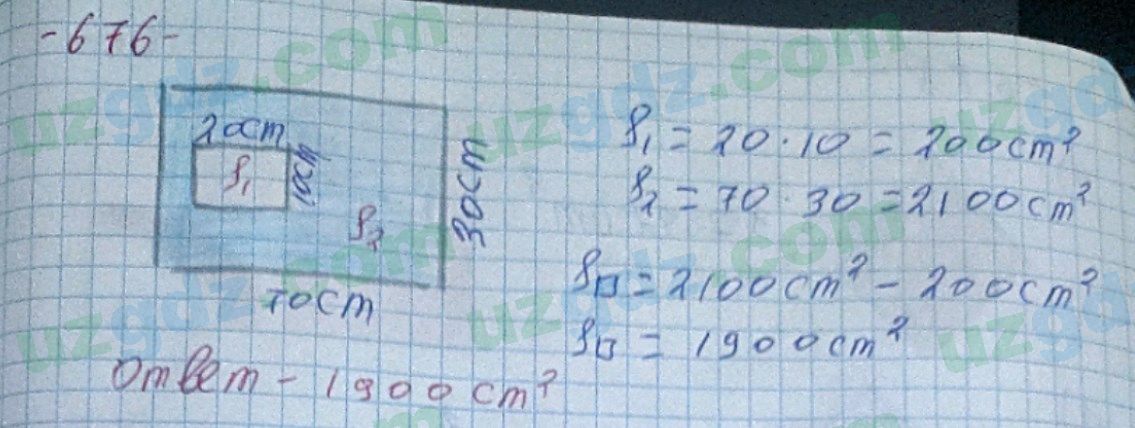 -676-
20cm
S₁
10cm
S₂
30cm
70cm
S₁ = 20 · 10 = 200cm²
S₂ = 70 · 30 = 2100cm²
S□ = 2100cm² - 200cm²
S□ = 1900cm²
Ответ - 1900cm²
uzgdz.com